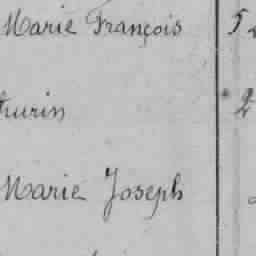 Marie François 5
turin 2
Marie Joseph